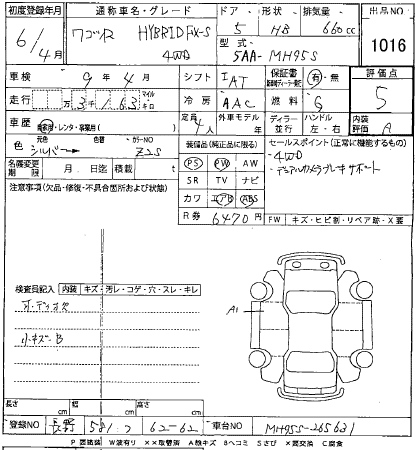 初度登録年月 通称車名・グレード ドア 形状 排気量 出品NO
6/4月 ワゴンR HYBRID FX-S 4WD 5 HB 660cc 1016
型式 5AA-MH95S
車検 9年4月 シフト IAT 保証書 有・無 評価点
走行 万3千163 マイル キロ 冷房 AAC 燃料 G 5
車歴 自家用・レンタ・事業用 定員 4人 外車モデル年 ディーラー 並行 ハンドル 左・右 内装評価 A
色 元色 シルバー 色替 カラーNO Z2S
装備品(純正品に限る) セールスポイント(正常に機能するもの)
名義変更期限 月 日迄 積載 t
PS PW AW
・4WD
・デュアルカメラブレーキサポート
注意事項(欠品・修復・不具合箇所および状態)
SR TV ナビ
カワ エアB ABS
R券 6470円 FW キズ・ヒビ割・リペア跡・X要
検査員記入 内装 キズ・汚レ・コゲ・穴・スレ・キレ
小キズ・B
A1
長さ cm 幅 cm 高さ cm
登録NO 長野 581 62-62 車台NO MH95S-265631
P 要塗装 W波有り XX取替済 A線キズ Bヘコミ Sさび X要交換 C腐食